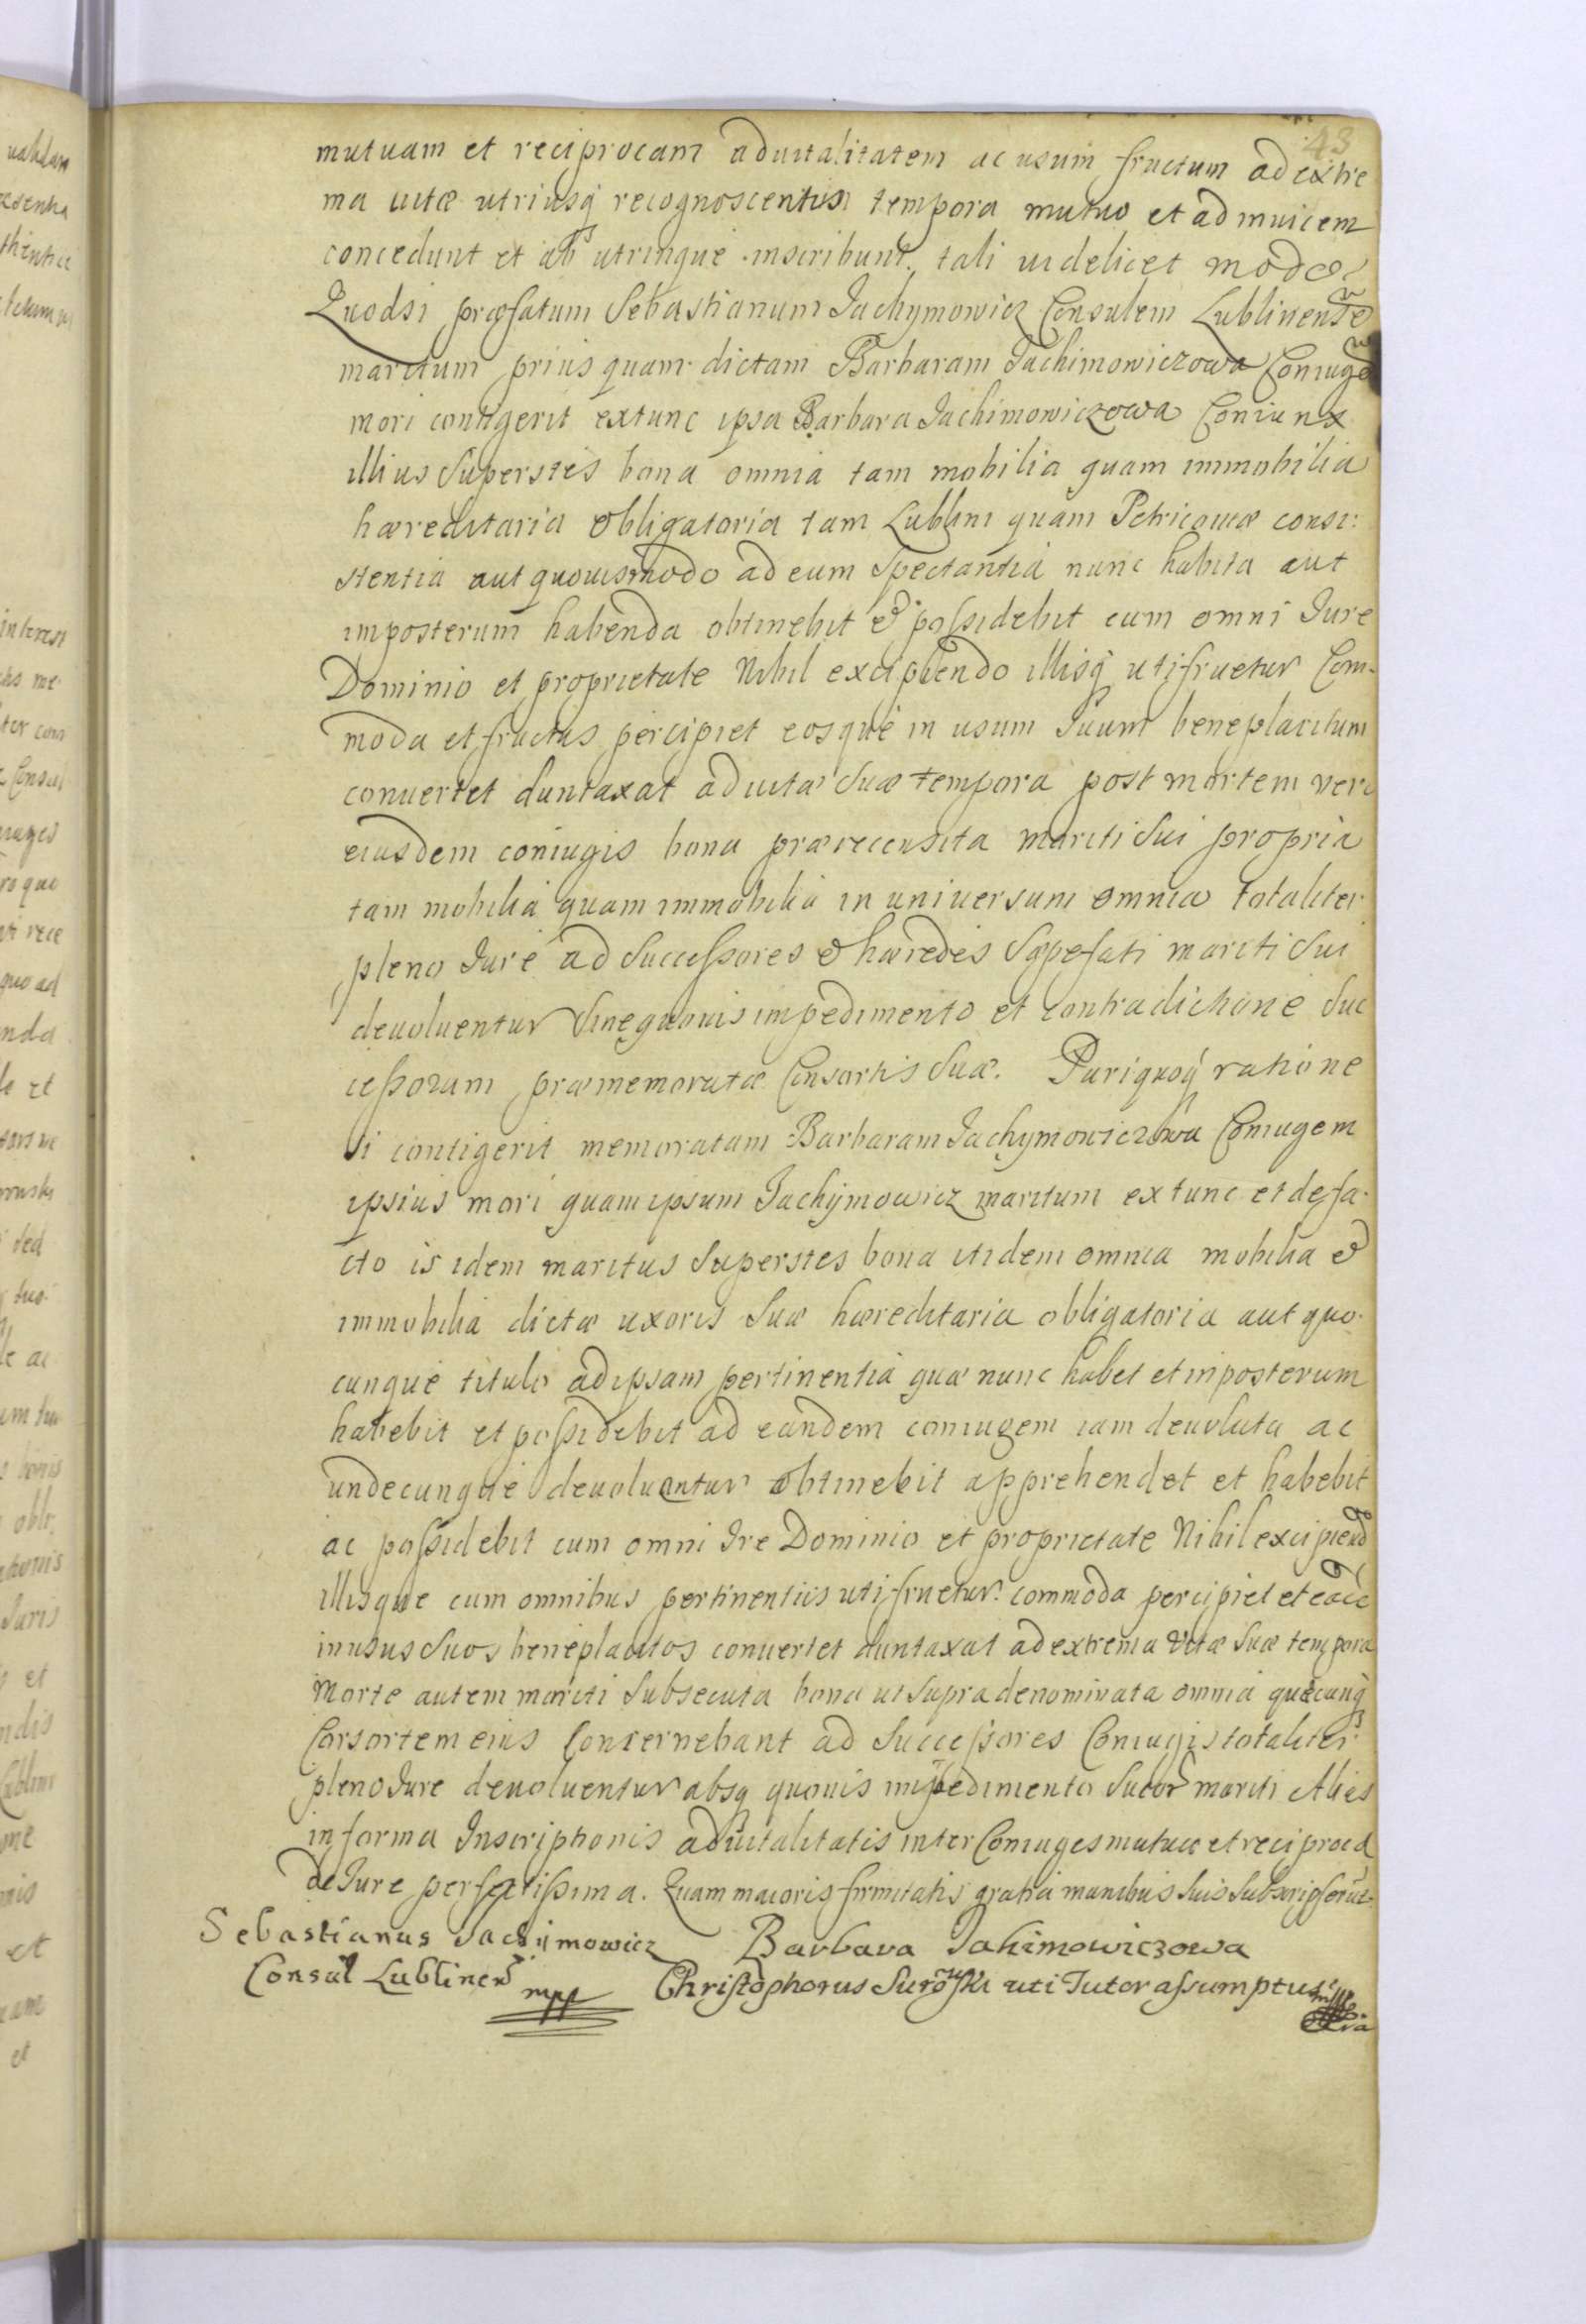 43
mutuam et reciprocam aduitalitatem ac usum fructum ad extre
ma uitæ utriusq́ recognoscentium tempora mutuo et ad inuicem
concedunt et utrinque inscribunt, tali uidelicet modo
Quodsi præfatum Sebastianum Jachymowicz Consulem Lublinensem
maritum prius quam dictam Barbaram Jachimowiczowa Coniugem
mori contigerit extunc ipsa Barbara Jachimowiczowa Coniunx
illius Superstes bona omnia tam mobilia quam immobilia
hæreditaria obligatoria tam Lublini quam Petricouiæ consi:
stentia aut quouismodo ad eum Spectantia nunc habita aut
imposterum habenda obtinebit & possidebit cum omni Jure
Dominio et proprietate Nihil excipiendo illisq́ utifruetur Com-
moda et fructus percipiet eosque in usum Suum beneplacitum
conuertet duntaxat ad uitæ Suæ tempora post mortem vero
eiusdem coniugis bona prærecensita mariti Sui propria
tam mobilia quam immobilia in uniuersum omnia totaliter
pleno Jure ad Successores & hæredes Sæpefati mariti Sui
deuoluentur Sine quouis impedimento et contradictione Suc
cessorum præmemoratæ Consortis Suæ. Pariquoq́ ratione
Si contigerit memoratam Barbaram Jachymowiczowa Coniugem
ipsius mori quam ipsum Jachymowicz maritum extunc et defa-
cto is idem maritus Superstes bona itidem omnia mobilia &
immobilia dictæ uxoris Suæ hæreditaria obligatoria aut quo-
cunque titulo ad ipsam pertinentia quæ nunc habet et inposterum
habebit et possidebit ad eandem coniugem iam deuoluta ac
undecunque deuoluantur obtinebit apprehendet et habebit
ac possidebit cum omni Jre Dominio et proprietate Nihil excipiendo
illisque cum omnibus pertinentiis utifruetur commoda percipiet
in usus Suos beneplacitos conuertet duntaxat ad extrema Vitæ Suæ tempora
Morte autem mariti Subsecuta bona ut Supra denominata omnia quæcunq́
Consortem eius Concernebant ad Successores Coniugis totaliter
pleno Jure deuoluentur absq quouis impedimento mariti Alias
in forma Inscriptionis aduitalitatis inter Coniuges mutuæ et reciprocæ
de Jure perfectissima. Quam maioris firmitatis gratia manibus Suis Subscripserut.
Sebastianus Jachijmowicz Barbara Jahimowiczowa
Consul Lublinens mpp Christophorus Surowski uti Tutor assumptus mppria